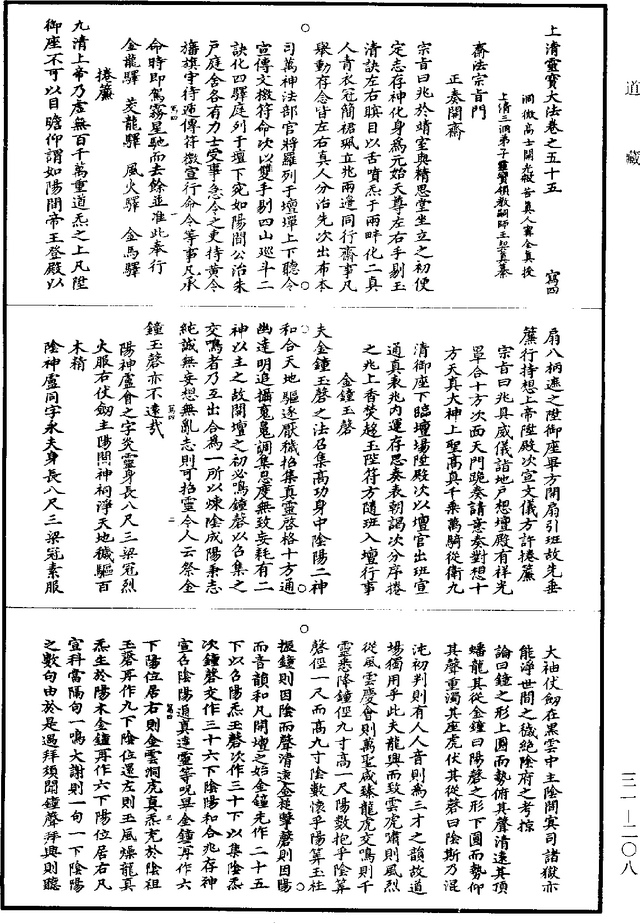 道藏
上清靈寶大法卷之五十五 寫四
洞微高士開光救苦真人甯全真授
上清三洞弟子靈寶領教嗣師王契真纂
齋法宗旨門
正奏開齋
宗旨曰兆於靖室與精思堂坐立之初便
定志存神化身為元始天尊左右手剔玉
清訣左右瞚目以舌噴炁于兩畔化二真
人青衣冠簡裙珮立兆兩邊同行齋事凡
舉動存念皆左右真人分治先次出布本
司萬神法部官將羅列于壇墠上下聽令
宣傳文檄符命次以雙手剔四山巡斗二
訣化四驛庭列于壇下宛如陽間公治朱
戶庭舍各有力士受事急令之吏持黃令
旛旗守待遞傳符檄宣行命令等事凡承
命時即駕霧星馳而去餘並准此奉行
金龍驛 茭龍驛 風火驛 金馬驛
捲簾
九清上帝乃虛無百千萬重道炁之上凡陞
御座不可以目瞻仰謂如陽間帝王登殿以
扇八柄遮之陞御座畢方開扇引班故先垂
簾行持想上帝陞殿次宣文儀方許捲簾
宗旨曰兆具威儀詣地戶想壇殿有祥光
罩合十方次面天門跪奏請意奏對想十
方天真大神上聖高真千乘萬騎從衛九
清御座下臨壇場陞殿次以壇官出班宣
通真表兆內運存思奏表朝謁次分序捲
之兆上香焚越玉陛符方隨班入壇行事
金鐘玉磬
夫金鐘玉磬之法召集高功身中陰陽二神
和合天地驅逐厭穢招集真靈啓格十方通
幽達明追攝䰟䰟調集息度無致妄耗有二
神以主之故開壇之初必鳴鐘磬以召集之
交鳴者乃互出合為一所以煉陰成陽秉志
純誠無妄想無亂志則可招靈今人云祭金
鐘玉磬亦不遠哉
陽神盧會之字炎靈身長八尺三梁冠烈
火服右仗劒主陽間神祠淨天地穢驅百
木精
陰神盧同字永夫身長八尺三梁冠素服
大袖仗劒在黑雲中主陰間冥司諸獄亦
能淨世間之穢絕陰府之考掠
論曰鐘之形上圓而勢俯其聲清遠其頂
蟠龍其從金鐘曰陽磬之形下圓而勢仰
其聲重濁其座虎伏其從磬曰陰斯乃混
沌初判則有人人音則為三才之韻故道
場獨用乎此夫龍興而致雲虎嘯則風烈
從風雲慶會則萬聖咸臻龍虎交鳴則千
靈悉降鐘徑九寸高一尺陽數抱乎陰筭
磬徑一尺而高九寸陰數懷乎陽筭玉柱
振鐘則因陰而聲清遠金鎚擊磬則因陽
而音韻和凡開壇之始金鐘先作二十五
下以召陽炁玉磬次作三十下以集陰炁
次鐘磬交作三十六下陰陽和合兆存神
宣召陰陽追真達靈等呪畢金鐘再作六
下陽位居右則金雲洞虎真炁充於陰祖
玉磬再作九下陰位還左則玉風燥龍真
炁生於陽木金鐘再作六下陽位居右凡
宣科當隔句一鳴大謝則一句一下陰陽
之數句由於是過拜須聞鐘聲拜興則聽
三一—二〇八